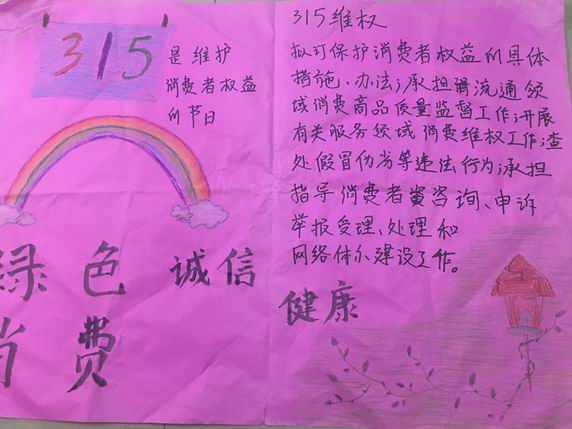 315
是维护
消费者权益
的节日
绿色
诚信
消费
315维权
拟订保护消费者权益的具体
措施、办法;承担
流通领
域消费商品质量监督工作;开展
有关服务领域消费维权工作;查
处假冒伪劣等违法行为;承担
指导消费者
咨询、申诉
举报受理、处理和
网络体
建设工作。
健康